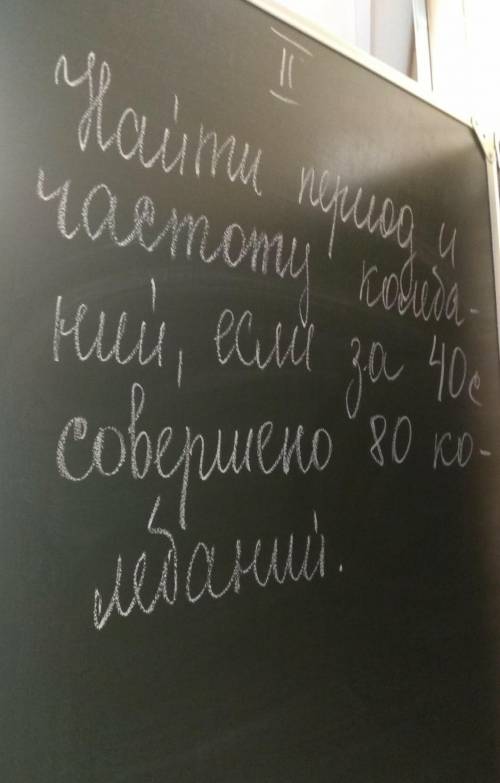 II
Найти период и
частоту колеба-
ний, если за 40с
совершено 80 ко-
лебаний.